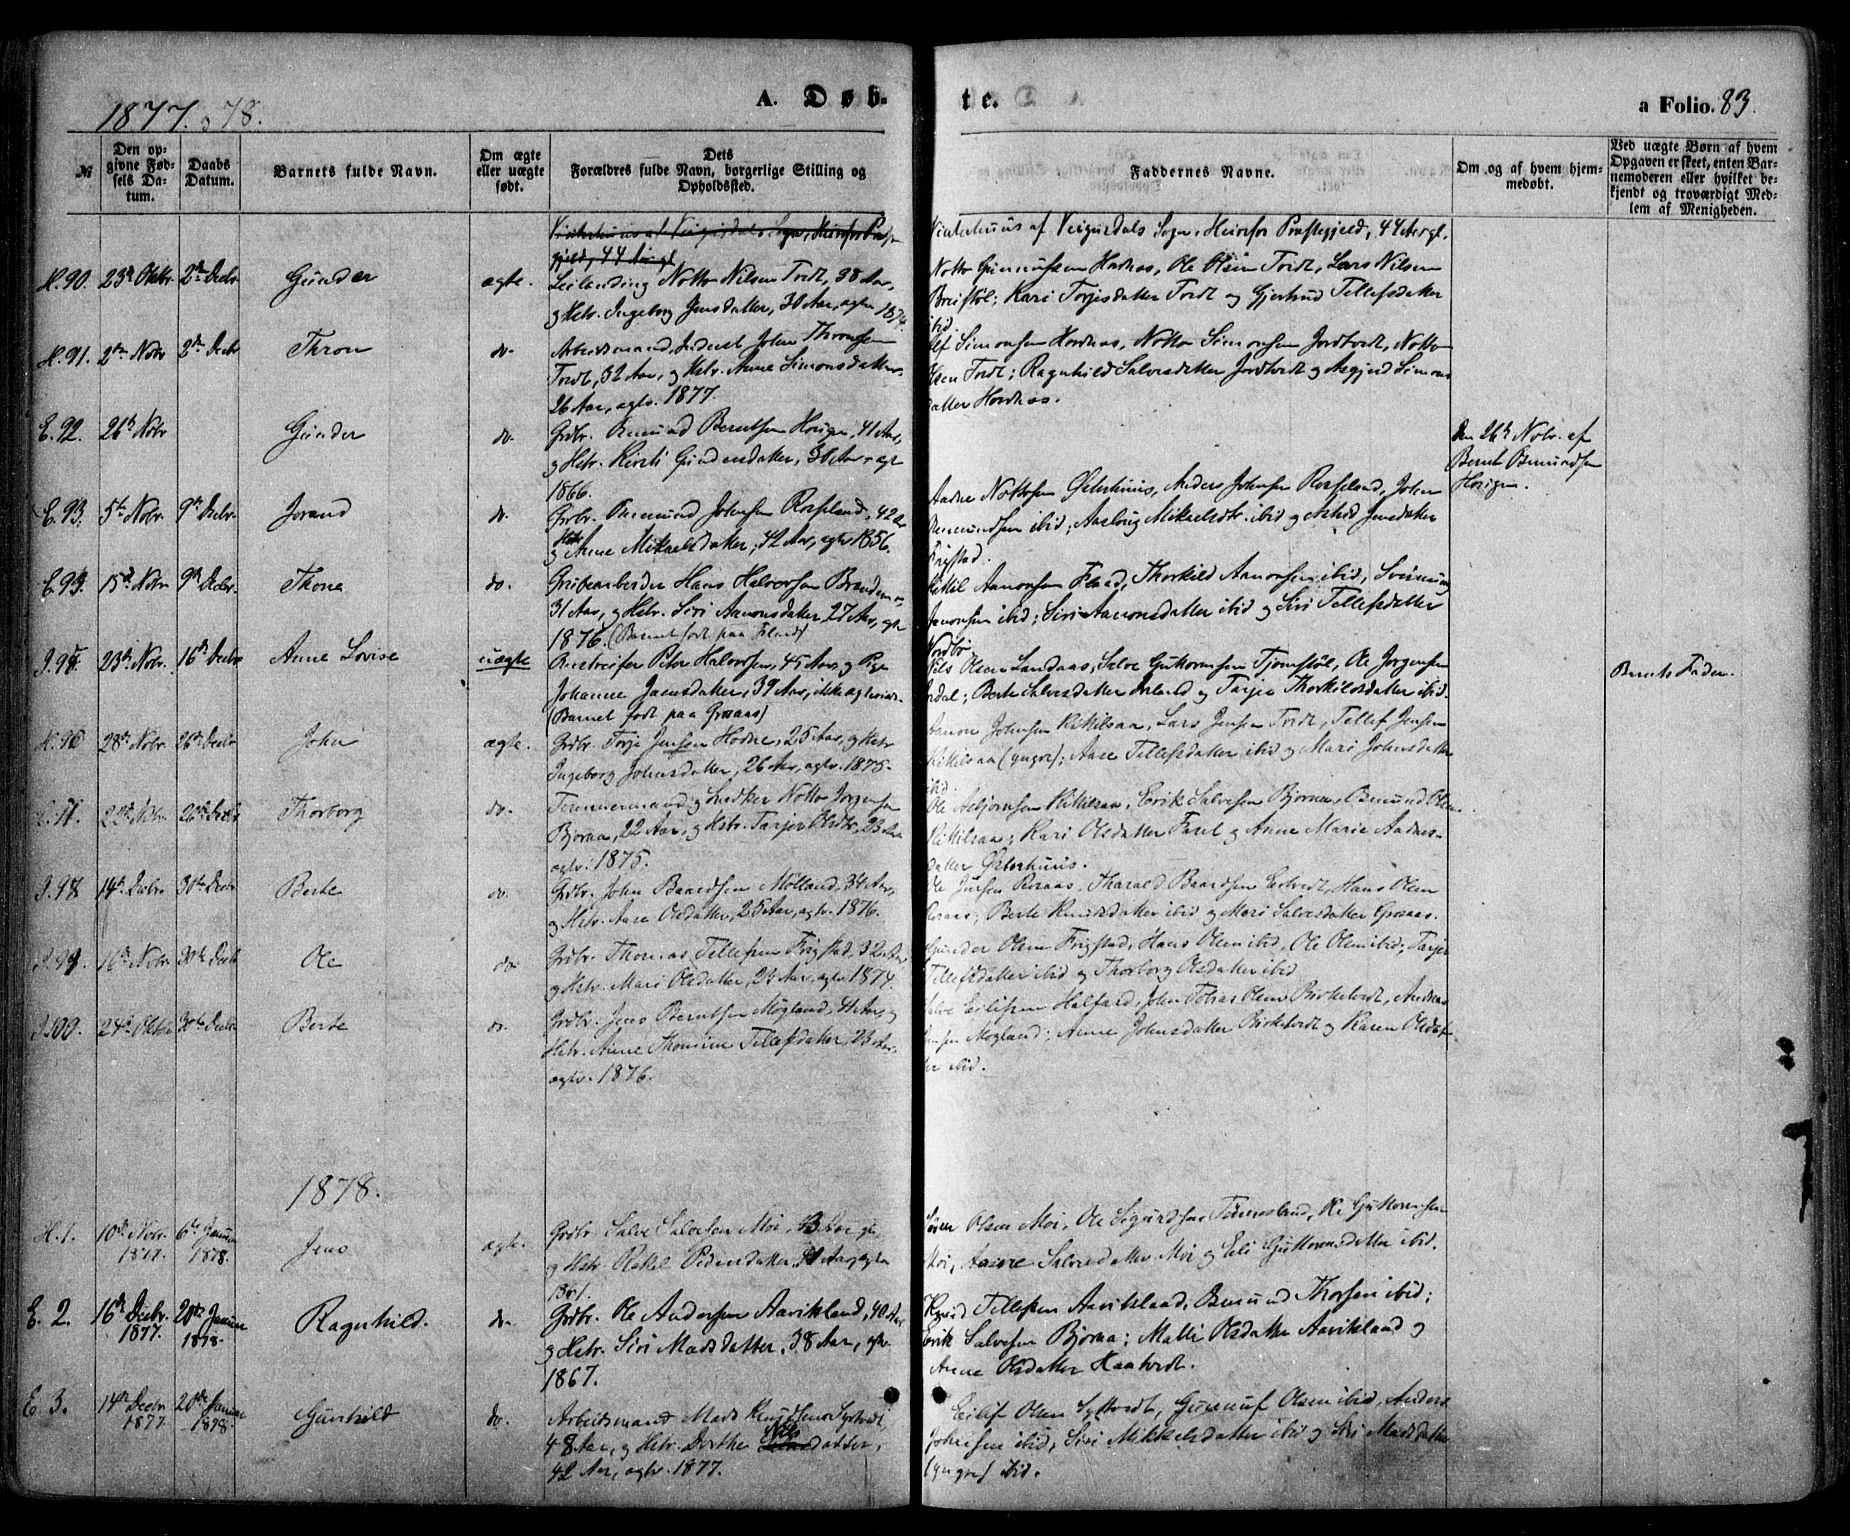 1877. o 78.
A. Døb-
te.
a Folio. 83.
№
Den opgivne Fødsels Datum.
Daabs Datum.
Barnets fulde Navn.
Om ægte eller uægte født.
Dets Forældres fulde Navn, borgerlige Stilling og Opholdssted.
Faddernes Navne.
Om og af hvem hjemmedøbt.
Ved uægte Børn af hvem Opgaven er skeet, enten Barnemoderen eller hvilket bekjendt og troværdigt Medlem af Menigheden.
Vinterhuus af Sogn,
44 Aar gl.
Vinterhuus af Sogn, Præstegjeld, 44 Aar gl.
H. 90. 23de Oktbr. 2den Decbr Gunder ægte.
Leilending Notto Nilsen Tordt, 38 Aar,
og Hstr. Ingeborg Jensdatter, 30 Aar, agtv 1874.
Notto Gunnufsen Hodnes, Ole Olsen Tordt, Lars Nilsen
Breistøl; Kari Torjisdatter Tordt og Gjertrud Tellefsdatter
ibid.
H. 91. 2den Novbr 2den Decbr Thron do.
Arbeidsmand, Inderst John Thronsen
Tordt, 32 Aar, og Hstr. Anne Simonsdatter,
26 Aar, agtv. 1877.
Simonsen Hodnes, Notto Simonsen Jordtvedt, Notto
Tordt; Ragnhild Salvesdatter Jordtvedt og Asgjerd Simons
datter Hodnes.
E. 92. 26de Novbr Gunder do.
Grdbr. Osmund Berntsen Horigen, 41 Aar,
og Hstr. Kirsti Gundersdatter, 36 Aar, agtv
1866.
Den 26de Novbr. af
Bernt Osmundsen
Horigen.
E. 93. 5te Novbr. 9de Decbr. Jorand do.
Grdbr. Osmund Johnsen Rosseland, 42 Aar
og Hstr Anne Mikaelsdatter, 42 Aar, agtv 1856.
Aadne Nottosen Østerhuus, Anders Johnsen Rosseland, John
Osmundsen ibid; Aaslaug Mikaelsdtr. ibid og Jensdatter
Frigstad.
15de Novbr 9de Decbr. Thone do.
Grubearbeider Hans Halvorsen
31 Aar, og Hstr. Siri Aanonsdatter, 27 Aar, agtv
1876. (Barnet født paa Flaad)
Kittil Aanonsen Flaad, Thorkild Aanonsen ibid,
Aanonsen ibid; Siri Aanonsdatter ibid og Siri Tellefsdatter
23de Novbr. 16de Decbr Anne Lovise uægte
Peter Halvorsen, 45 Aar, og Pige
Johanne Jaensdatter, 39 Aar, ikke
(Barnet født paa Graaas)
Nils Olsen Landaas, Salve Guttormsen Tjomstøl, Ole Jørgensen
Berte Salvesdatter og Tarjer Thorkildsdatter ibid.
Barnets Fader.
H. 96 28de Novbr. 26de Decbr John ægte.
Grdbr. Torje Jensen Hodne, 25 Aar, og Hstr
Ingeborg Johnsdatter, 26 Aar, agtv. 1875.
Aanon Johnsen Kittilsaa, Lars Jensen Tordt, Tellef Jensen
Kittilsaa (yngre); Aase Tellefsdatter ibid og Mari Johnsdatter
ibid.
26de Decbr Thorborg do.
Tømmermand og Snedker Notto Jørgensen
Bjoraa, 22 Aar, og Hstr. Tarjer Olsdtr, 23 Aar
agtv. 1875.
Ole Asbjørnsen Kittilsaa, Erik Salvesen Bjoraa, Osmund Olsen
Kittilsaa; Kari Olsdatter Faret og Anne Marie Aadnes-
datter Østerhuus.
98 14de Decbr 30te Decbr Berte do.
Grdbr. John Baardsen Mølland, 34 Aar,
og Hstr. Aase Olsdatter, 25 Aar, agtv. 1876.
Ole Jensen Roraas, Tharald Baardsen Hans Olsen
Roraas; Berte Knudsdatter ibid og Mari Salvesdatter Graaas.
99. 16de Novbr 30te Decbr Ole do.
Grdbr. Thomas Tellefsen Frigstad, 32 Aar,
og Hstr. Mari Olsdatter, 25 Aar, agtv. 1874.
Gunder Olsen Frigstad, Hans Olsen ibid, Ole Olsen ibid; Tarjer
Tellefsdatter ibid og Thorborg Olsdatter ibid.
100. 24de Oktbr 30te Decbr Berte do.
Grdbr. Jens Berntsen Mogland, 41 Aar, og
Hstr. Anne Thomine Tellefsdatter, 23 Aar.
agtv. 1876.
Salve Eilifsen Halfard, John Tobias Olsen Birketvedt, Andreas
Jensen Mogland; Anne Johnsdatter Birketvedt og Karen Olsdat-
ter ibid.
1878.
H. 1. 10de Novbr. 1877. 6te Januar 1878. Jens ægte.
Grdbr Salve Salvesen Moi,
og Hstr. Rakel Pedersdatter,
1861.
Søren Olsen Moi, Ole Sigurdsen Tønnesland, Guttormsen
Moi, Aasne Salvesdatter Moi og Eli Guttormsdatter ibid.
E. 2. 16de Decbr. 1877. 20de Januar 1878. Ragnhild. do.
Grdbr. Ole Andersen Aavitsland, 40 Aar
og Hstr. Siri Madsdatter, 38 Aar, agtv.
1867.
Tellefsen Aavitsland, Osmund Thorsen ibid;
Erik Salvesen Bjoraa; Malli Olsdatter Aavitsland og
Anne Olsdatter Haatvedt.
E. 3. 14de Decbr 1877. 20de Januar 1878. Gunhild do.
Arbeidsmand Mads Knudsen Syrtvedt,
48 Aar, og Hstr. Dorthe Nilsdatter,
42 Aar, agtv. 1877.
Eilif Olsen Syrtvedt, Gunnuf Olsen ibid, Anders
Johnsen ibid, Siri Mikkelsdatter ibid og Siri Madsdatter
(yngre) ibid.